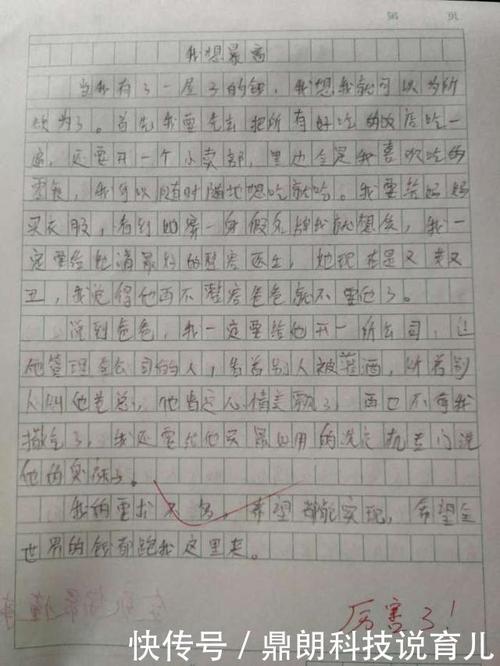 第 页
我想暴富
当我有了一屋子的钱,我想我就可以为所
欲为了。首先我要先去把所有好吃的饭店吃一
遍,还要开一个小卖部,里边全是我喜欢吃的
零食,我可以随时随地想吃就吃。我要给妈妈
买衣服,看到她穿一身假名牌我就想笑,我一
定要给她请最好的整容医生,她现在是又老又
丑,我觉得她再不整容爸爸就不要她了。
说到爸爸,我一定要给他开一所公司,让
他管理全公司的人,看着别人被 ,听着别
人叫他老总,他肯定心情美飘了,再也不拿我
撒气了,我还要给他买最 用的洗衣机专门洗
他的臭袜子。
我的要求不多,希望都能实现,希望全
世界的钱都跑我这里来。
厉害了!
快传号/鼎朗科技说育儿